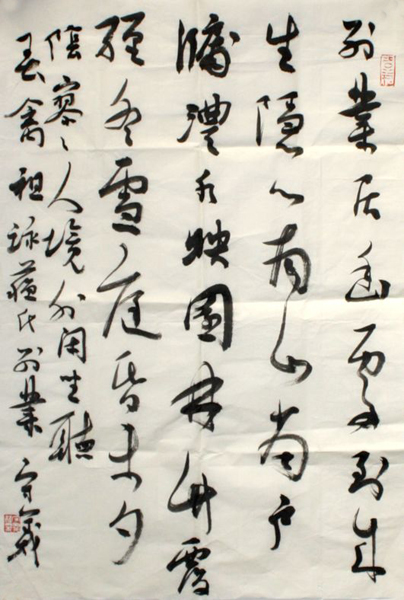 别業居幽處到来
生隱心南山當户
牖澧水映園林竹覆
經冬雪庭昏未夕
陰寥々人境外閑坐聽
春禽 祖詠蘇氏别業 守義